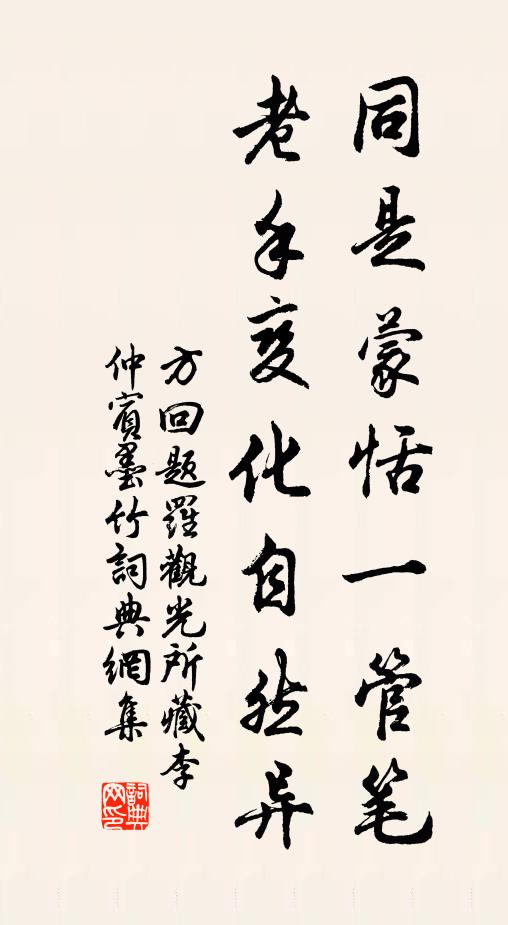 同是蒙恬一管笔
老手变化自然异
方回题羅觀光所藏李
仲賓墨竹詞典網集
詞典网印